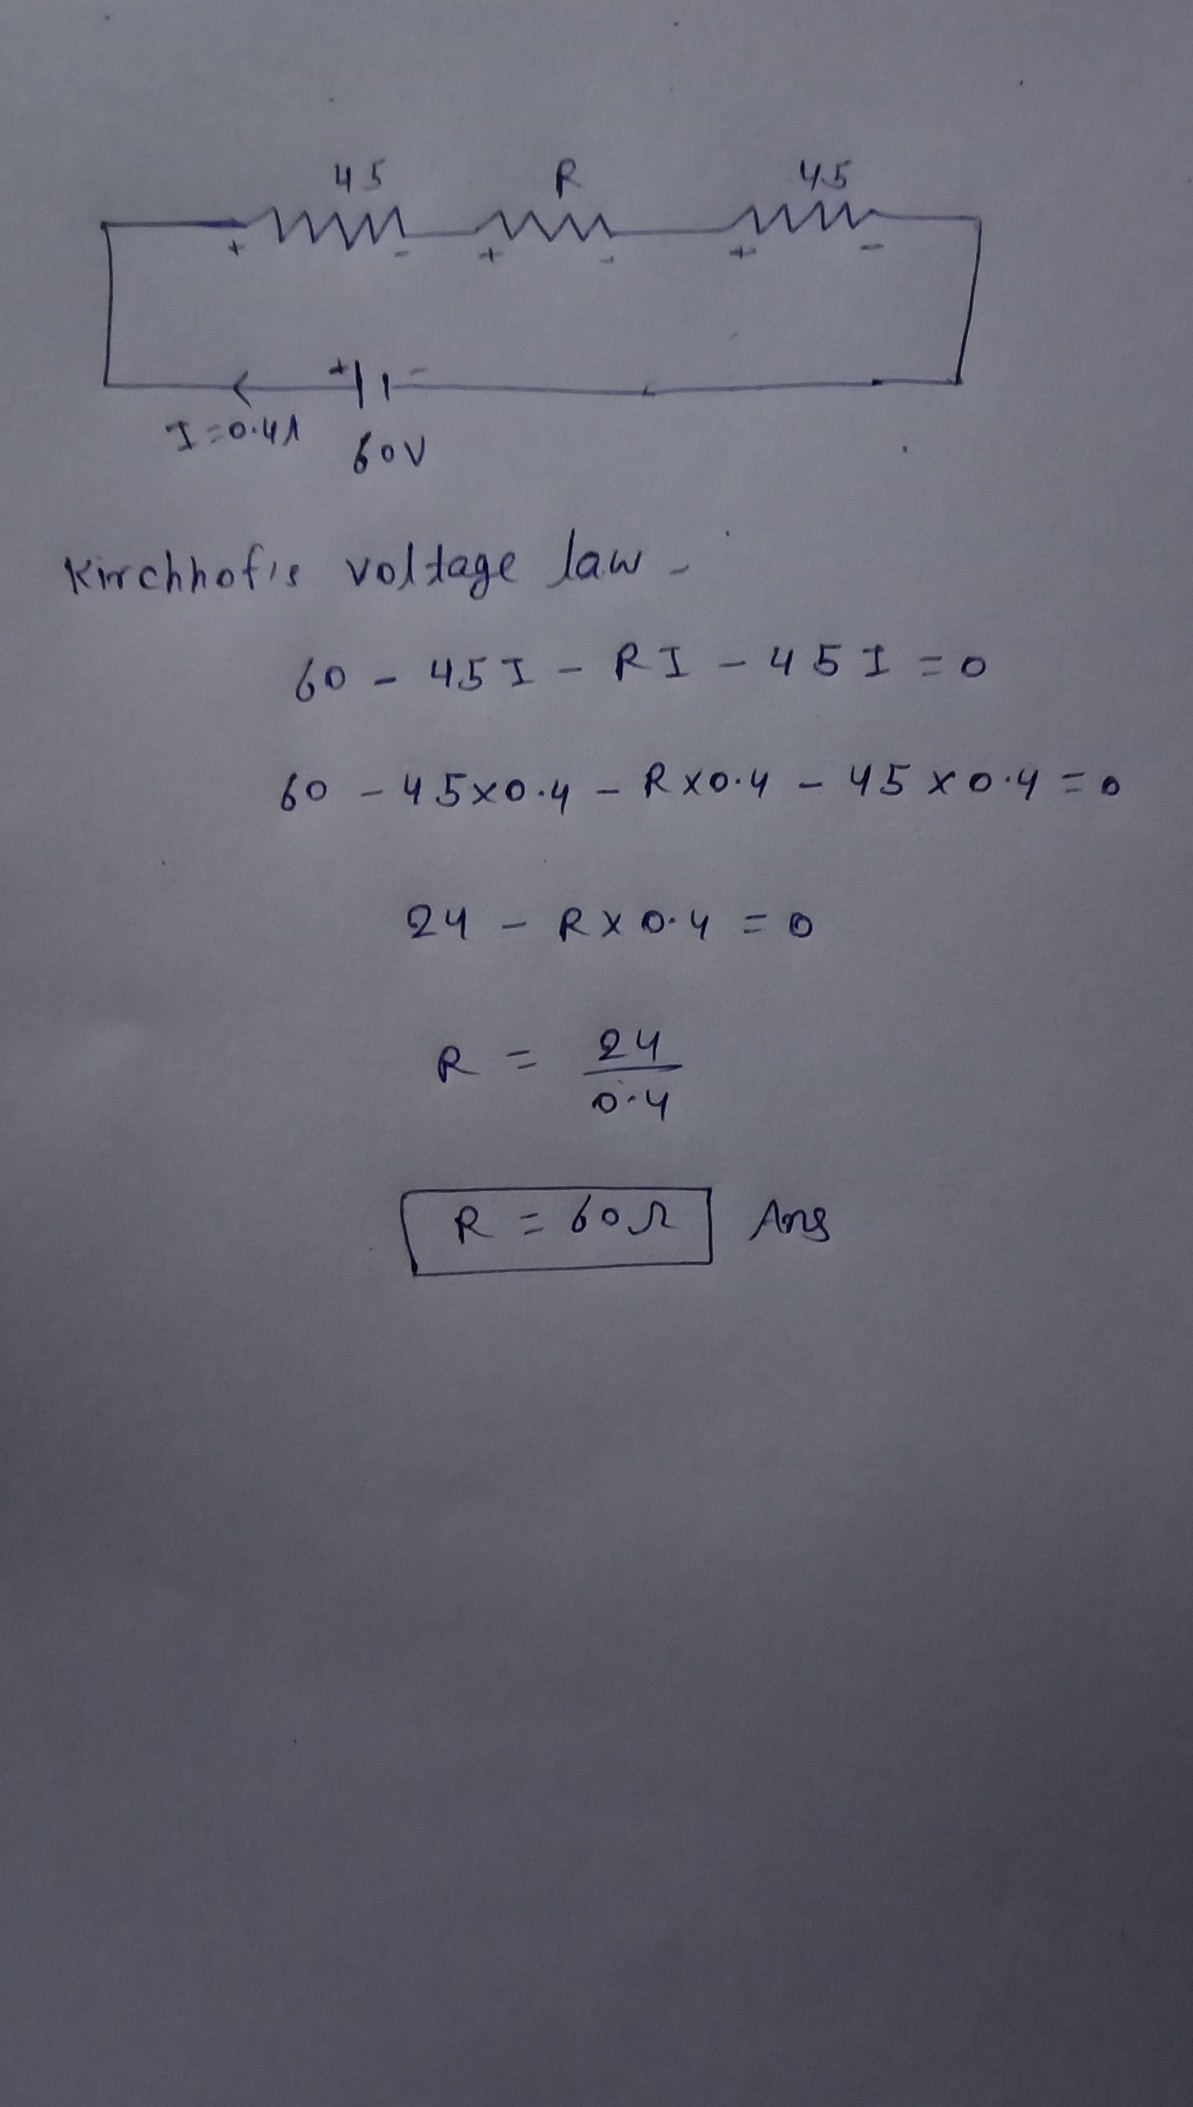 45 R 45
+ - + - + -
+ -
I=0.4A
60V
Kirchhof's voltage law -
60 - 45I - RI - 45I = 0
60 - 45×0.4 - R×0.4 - 45×0.4 = 0
24 - R×0.4 = 0
R = 24/0.4
R = 60Ω Ans